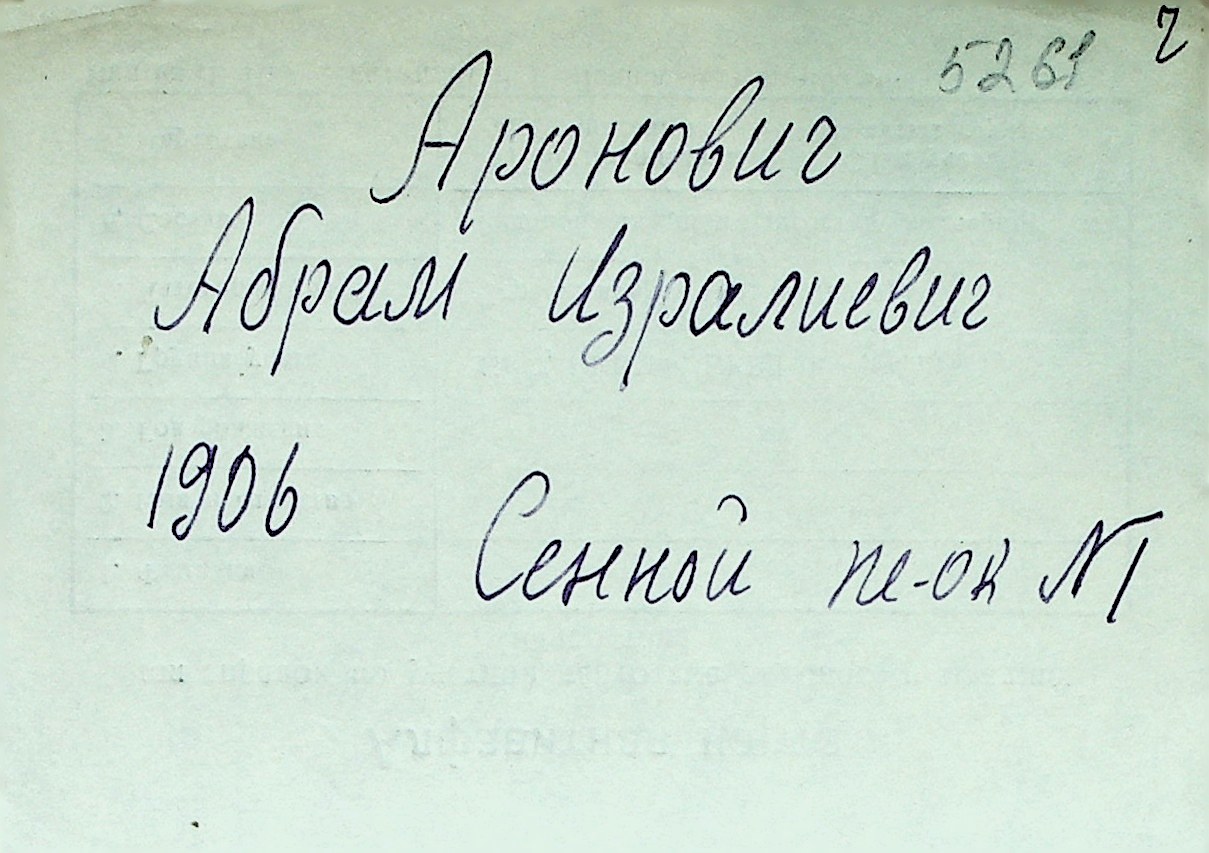 5261 г
Аронович
Абрам Изралиевич
1906
Сенной пе-ок №1